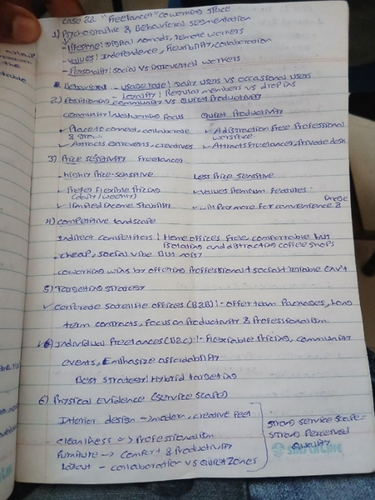 Case 22 "Freelancer" coworking space
1) Psychographic & Behavioral segmentation
- Lifestyle: Digital nomads, remote workers
- Values: Independence, flexibility, collaboration
- Personality: Social vs introverted workers
Behavioral - usage rate: Daily users vs occasional users
- Loyalty: Regular members vs drop ins
2) Positioning community vs quiet productivity
community/collaborative focus Quiet Productivity
✓ Place to connect, collaborate ✓ A distraction free professional
& grow workspace
✓ Attracts extroverts, creatives ✓ Attracts Freelancers, private desk
3) Price sensitivity Freelancers
Higher Price-sensitive Less Price sensitive
✓ Prefer flexible pricing ✓ values premium features
✓ limited income stability ✓ will pay more for convenience &
4) competitive landscape
Indirect competitors: Home offices free, comfortable but
isolating and distracting coffee shops
✓ cheap, social vibe but noisy
coworking wins by offering Professional + social + reliable env't
5) Targeting strategy
✓ corporate satellite offices (B2B):- offer team packages, long
term contracts, focus on Productivity & Professionalism.
Individual Freelancers (B2C):- Flexiable Pricing, community
events, Emphasize affordability
Best strategy: Hybrid targeting
6) Physical evidence (service scape)
Interior design → modern, creative feel
cleanliness → Professionalism
Furniture → comfort & Productivity
Layout - collaboration vs quiet zones
strong service scape =
strong Perceived
quality
SINARLINE